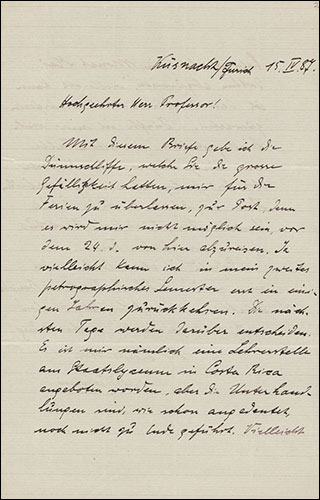 Küsnacht/Zürich 15. IV 87.
Hochgeehrter Herr Professor!
Mit diesem Briefe gebe ich die
Dünnschliffe, welche Sie die grosse
Gefälligkeit hatten, mir für die
Ferien zu überlassen, zur Post, denn
es wird mir nicht möglich sein, vor
dem 24. d. von hier abzureisen. Ja
vielleicht kann ich in mein zweites
petrographisches Semester erst in eini-
gen Jahren zurückkehren. Die näch-
sten Tage werden darüber entscheiden.
Es ist mir nämlich eine Lehrerstelle
am Staatslyceum in Costa Rica
angeboten worden, aber die Unterhand-
lungen sind, wie schon angedeutet,
noch nicht zu Ende geführt. Vielleicht